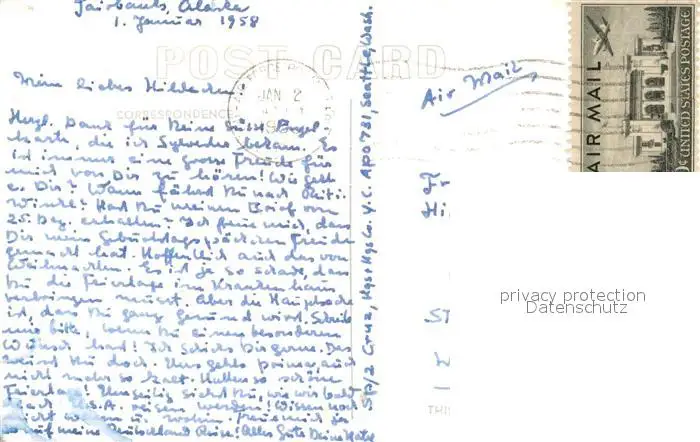 Fairbanks, Alaska
1. Januar 1958
POST CARD
Mein liebes Hildchen
CORRESPONDENCE
JAN 2
Air Mail
Herzl. Dank für Deine süsse
karte, die ich Sylvester bekam. Es
ist immer eine grosse Freude für
mich von Dir zu hören! Wie geht
e. Dir? Wann fährst Du nach
Hast Du meinen Brief vom
25. Dez. erhalten? Ich freue mich, dass
Dir mein Geburtstagspäckchen Freude
gemacht hat. Hoffentlich auch das von
Weihnachten. Es ist ja so schade, dass
Du die Feiertage im Krankenhaus
verbringen musst. Aber die Hauptsache
ist, dass Du ganz gesund wirst. Schreib
mir bitte, wenn Du einen besonderen
Wunsch hast! Ich schicke Dir gerne. Das
weisst Du doch. Uns gehts prima, auch
nicht mehr so kalt. Hatten so schöne
Feiertage! Einseitig wie wir bald
nach U.S.A. reisen werden! Wissen noch
nicht wann u. wohin.
auf meine Deutschland Reise! Alles Gute Deine
Sp/2 Cruz, Hqs+Hqs Co. Y.C. APO 731, Seattle, Wash.
AIR MAIL
UNITED STATES POSTAGE
Fr
Hi
privacy protection
Datenschutz
St
W
THIS